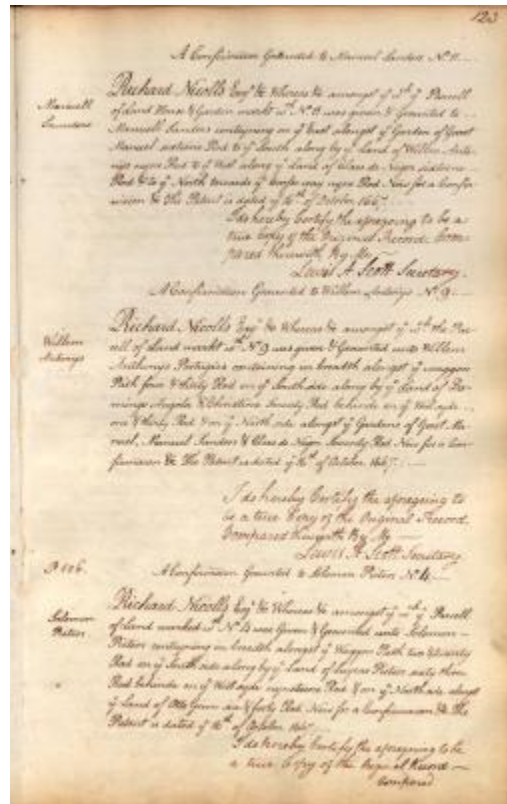 123
A Confirmation Graunted to Manuel Sanders No 11
Manuell
Saunders
Richard Nicolls Esqr &c Whereas &c amongst ye Parcell
of Land House & Garden markt wth No 11 was given & Graunted to
Manuel Sanders containing on ye East alongst ye Garden of Groot
Manuel sixteene Rod to ye South along by ye Land of Willem Anto-
nys Rod to ye West along ye Land of Claes de Neger sixteene
Rod & to ye North towards ye way Rod Now for a Confir-
macon &c The Patent is dated ye 16th of October 1667
I do hereby Certify the aforegoing to be a
true Copy of the Original Record. Com-
pared therewith By Me
Lewis A Scott Secretary.
A Confirmation Graunted to Willem Antonys No 9
Willem
Antonys
Richard Nicolls Esqr &c Whereas &c amongst ye the Par-
cell of Land markt wth No 9 was given & Graunted unto Willem
Anthonys Portugies containing in breadth alongst ye waggon
Path four & thirty Rod on ye Southside along by ye Land of Do-
mingo Angola & Seventy Rod behinde on ye West syde
one & thirty Rod & on ye North side alongst ye Gardens of Groot Ma-
nuel, Manuel Sanders & Claes de Neger Seventy Rod Now for a Con-
firmacon &c The Patent is dated ye 16th of October 1667
I do hereby Certify the aforegoing to
be a true Copy of the Original Record.
Compared therewith By Me
Lewis A Scott Secretary
P 106.
A Confirmation Graunted to Solomon Pieters No 4
Solomon
Pieters
Richard Nicolls Esqr &c Whereas &c amongst ye ye Parcell
of Land marked wth No 4 was Given & Graunted unto Solomon
Pieters containing in breadth alongst ye Waggon Path two & twenty
Rod on ye South side along by ye Land of Pieters sixty three
Rod behinde on ye West syde Rod & on ye North side alongst
ye Land of & forty Rod Now for a Confirmacon &c The
Patent is dated ye 16th of October 1667
I do hereby Certify the aforegoing to be
a true Copy of the Original Record
Compared